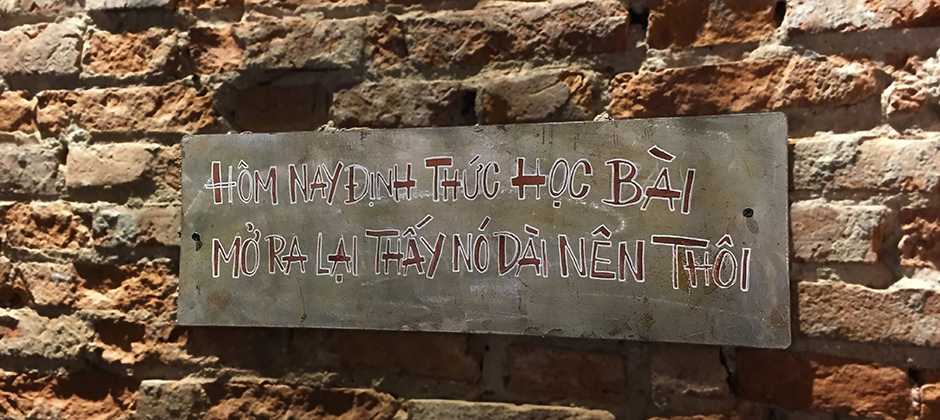 HÔM NAY ĐỊNH THỨC HỌC BÀI
MỞ RA LẠI THẤY NÓ DÀI NÊN THÔI